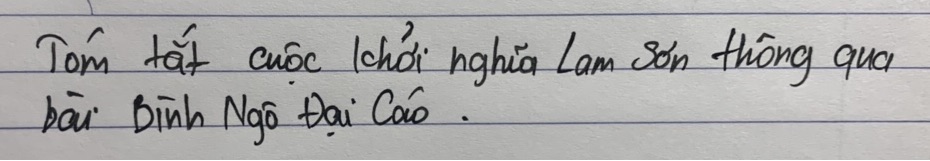 Tóm tắt cuộc khởi nghĩa Lam Sơn thông qua
bài Bình Ngô Đại Cáo.